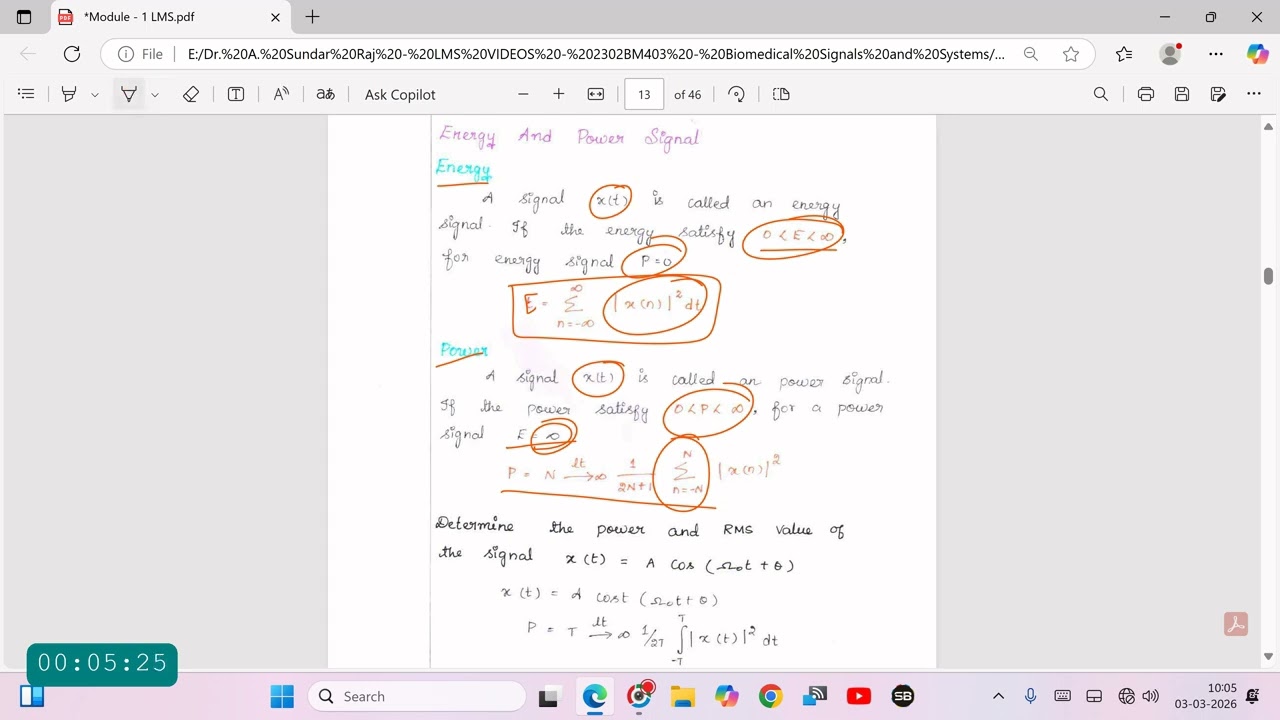 *Module - 1 LMS.pdf
File
E:/Dr.%20A.%20Sundar%20Raj%20-%20LMS%20VIDEOS%20-%202302BM403%20-%20Biomedical%20Signals%20and%20Systems/...
Ask Copilot
13 of 46
Energy And Power Signal
Energy
A signal x(t) is called an energy
signal. If the energy satisfy 0 < E < ∞,
for energy signal P=0
E = ∞ Σ n=-∞ |x(n)|² dt
Power
A signal x(t) is called an power signal.
If the power satisfy 0 < P < ∞, for a power
signal E = ∞
P = N lt → ∞ 1/2N+1 N Σ n=-N |x(n)|²
Determine the power and RMS value of
the signal x(t) = A cos (Ω₀t + θ)
x(t) = A cost (Ω₀t + θ)
P = T lt → ∞ 1/2T T ∫ -T |x(t)|² dt
00:05:25
Search
SB
10:05
03-03-2026